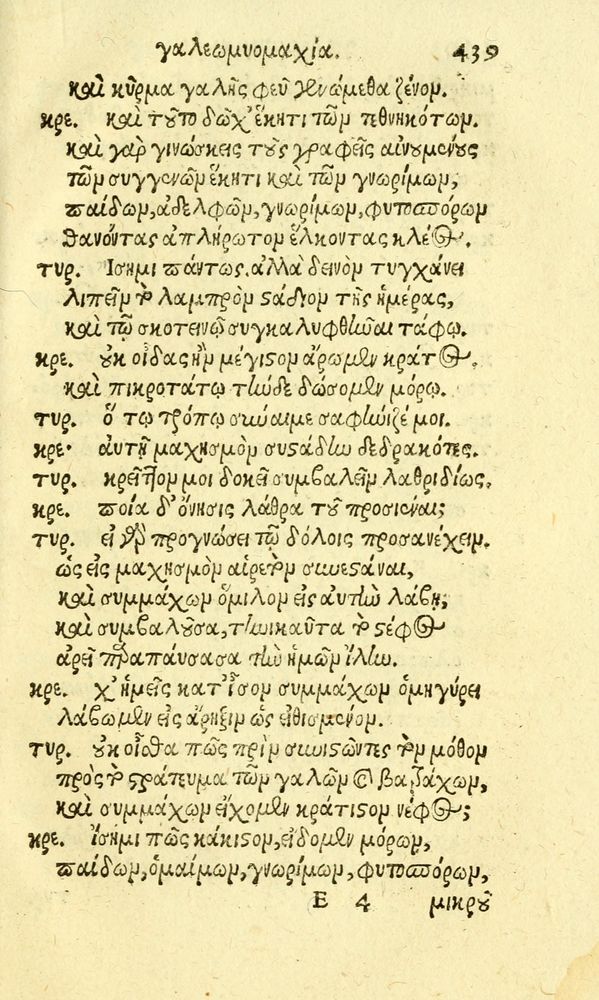 γαλεωμυομαχία. 439
καὶ κύρμα γαλῆς φεῦ γενώμεθα ξένον.
κρε. καὶ τοῦτο δῶχ' ἕκητι τῶν τεθνηκότων.
καὶ γὰρ γινώσκεις τοὺς γραφεῖς αἰνουμένους
τῶν συγγενῶν ἕκητι καὶ τῶν γνωρίμων,
παίδων, ἀδελφῶν, γνωρίμων, φυτοσπόρων
θανόντας ἀπλήρωτον ἕλκοντας κλέος.
τυρ. Ισημι πάντως. ἀλλὰ δεινὸν τυγχάνει
λιπεῖν τὸ λαμπρὸν στάδιον τῆς ἡμέρας,
καὶ τῷ σκοτεινῷ συγκαλυφθῆναι τάφῳ.
κρε. οὐκ οἶδας ἢν μέγιστον ἄρωμεν κράτος,
καὶ πικροτάτῳ τήνδε δώσομεν μόρῳ.
τυρ. ὅ τῳ τρόπῳ σαφήνιζέ μοι.
κρε. αὐτῇ μαχησμὸν συστάδην δεδρακότες.
τυρ. κρεῖττόν μοι δοκεῖ συμβαλεῖν λαθριδίως.
κρε. ποία δ' ὄνησις λάθρα τοῦ προσιέναι;
τυρ. εἰ γὰρ προγνώσει τῷ δόλοις προσανέχειν.
ὡς εἰς μαχησμὸν αἱρετὸν συνεστάναι,
καὶ συμμάχων ὅμιλον εἰς αὐτὴν λάβῃ;
καὶ συμβαλοῦσα, τηνικαῦτα τὸ στέφος
ἀρεῖ τὴν ἡμῶν ἴλην.
κρε. χ' ἡμεῖς κατ' ἶσον συμμάχων ὁμηγύρει
λάβωμεν εἰς ἄρηξιν ὡς εἰθισμένον.
τυρ. οὐκ οἶσθα πῶς πρὶν συνιστῶντες τὸν μόθον
πρὸς τὸ στράτευμα τῶν γαλῶν καὶ βατράχων,
καὶ συμμάχων εἴχομεν κράτιστον νέφος;
κρε. ἴσημι πῶς κάκιστον, εἴδομεν μόρον,
παίδων, ὁμαίμων, γνωρίμων, φυτοσπόρων,
E 4 μικροῦ